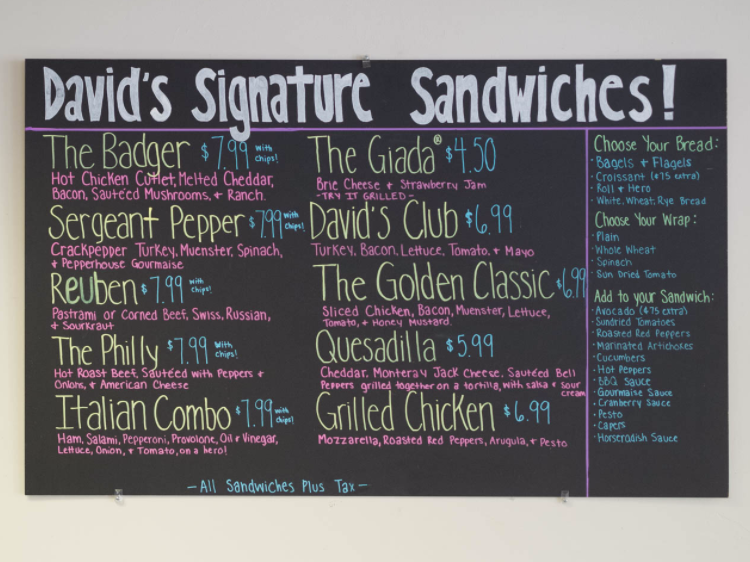 David's Signature Sandwiches!
The Badger $7.99 with chips!
Hot Chicken Cutlet, Melted Cheddar,
Bacon, Sauteéd Mushrooms, + Ranch.
Sergeant Pepper $7.99 with chips!
Crackpepper Turkey, Muenster, Spinach,
+ Pepperhouse Gourmaise
Reuben $7.99 with chips!
Pastrami or Corned Beef, Swiss, Russian,
+ Sourkraut
The Philly $7.99 with chips!
Hot Roast Beef, Sauteéd with Peppers +
Onions, + American Cheese
Italian Combo $7.99 with chips!
Ham, Salami, Pepperoni, Provolone, Oil + Vinegar,
Lettuce, Onion, + Tomato, on a hero!
The Giada® $4.50
Brie Cheese + Strawberry Jam
-TRY IT GRILLED-
David's Club $6.99
Turkey, Bacon, Lettuce, Tomato, + Mayo
The Golden Classic $6.99
Sliced Chicken, Bacon, Muenster, Lettuce,
Tomato, + Honey Mustard.
Quesadilla $5.99
Cheddar, Monteray Jack Cheese, Sauteéd Bell
Peppers grilled together on a tortilla, with salsa + sour
cream
Grilled Chicken $6.99
Mozzarella, Roasted Red Peppers, Arugula, + Pesto
Choose Your Bread:
· Bagels + Flagels
· Croissant ($.75 extra)
· Roll + Hero
· White, Wheat, Rye Bread
Choose Your Wrap:
· Plain
· Whole Wheat
· Spinach
· Sun Dried Tomato
Add to your Sandwich:
· Avocado ($.75 extra)
· Sundried Tomatoes
· Roasted Red Peppers
· Marinated Artichokes
· Cucumbers
· Hot Peppers
· BBQ Sauce
· Gourmaise Sauce
· Cranberry Sauce
· Pesto
· Capers
· Horseradish Sauce
-All Sandwiches Plus Tax-